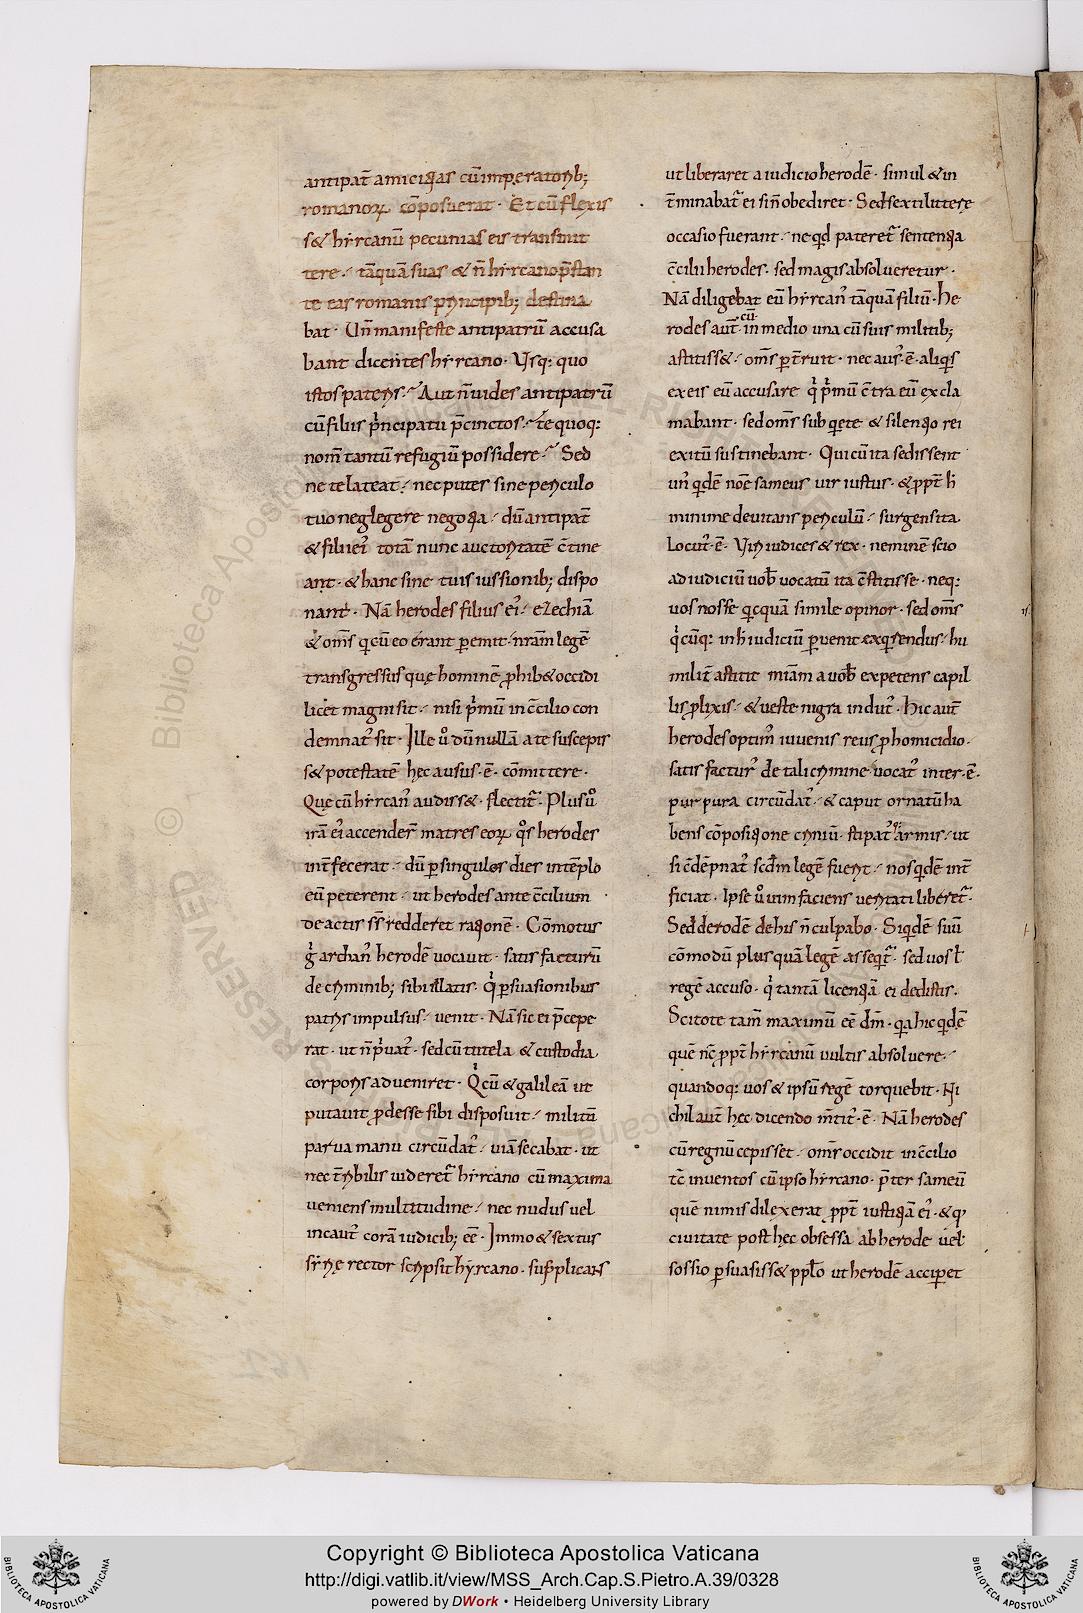 antipat̄ amicitias cū imperatorib;
romanoꝝ cōposuerat · Et cū flexis
s& hircanū pecunias eis transmit
tere · tāquā suas & n̄ hircano p̄stan
te eas romanis principib; destina
bat · Un̄ manifeste antipatrū accusa
bant dicentes hircano · Usq: quo
istos pateris · Aut n̄ uides antipatrū
cū filiis p̍ncipatu p̄cinctos · te quoq:
nom̄ tantū refugiū possidere · Sed
ne te lateat · nec putes sine periculo
tuo neglegere negotia · dū antipat̄
& filii ei᾽ totā nunc auctoritatē c̄tine
ant · & hanc sine tuis iussionib; dispo
nant · Nā herodes filius ei᾽ · ezechiā
& om̄s q̍ cū eo erant ꝑemit · nr̄am legē
transgressus quę hominē ꝓhib& occidi
licet magni sit · nisi p̍mū in c̄cilio con
demnat᾽ sit · Ille u᷎ dū nullā a te suscepis
s& potestatē hęc ausus · ē · cōmittere ·
Quę cū hircan᾽ audiss& · flectit᷑ · Plus u᷎
irā ei᾽ accender̄ matres eoꝝ q᷎s herodes
int̄fecerat · dū ꝑ singulos dies in tēplo
eū peterent · ut herodes ante c̄cilium
de actis ss̄ redderet rationē · Cōmotus
g̍ archan᾽ herodē uocauit · satis facturū
de criminib; sibi illatis · Q̍ ꝑsuasionibus
patris impulsus · uenit · Nā sic ei p̄cepe
rat · ut n̄ p̍uat᾽ · sed cū tutela & custodia
corporis adueniret · Q̍ cū & galileā ut
putauit ꝓdesse sibi disposuit · militū
parua manu circūdat᾽ · uiā secabat · ut
nec t̄ribilis uideret᷑ hircano cū maxima
ueniens multitudine · nec nudus uel
incaut᾽ corā iudicib; eē · Immo & sextus
sẏrię rector scripsit hẏrcano · supplicans
ut liberaret a iudicio herodē · simul & in
t̄minabat᷑ ei si n̄ obediret · Sed sexti litterę
occasio fuerant · ne q̍d pateret᷑ sententia
c̄cilii herodes · sed magis absolueretur ·
Nā diligebat eū hircan᾽ tāquā filiū · He
rodes aut̄ · cū in medio una cū suis militib;
astitiss& · om̄s ꝑt̄ruit · nec aus᾽ · ē · aliq̍s
ex eis eū accusare q̍ p̍mū c̄tra eū excla
mabant · sed om̄s sub q̍ete & silentio rei
exitū sustinebant · Qui cū ita sedissent
un᾽ q̍dē noē sameus uir iustus · & ꝓpt̄ h̄
minime deuitans periculū · surgens ita
locut᾽ · ē · Viri iudices & rex · neminē scio
ad iudiciū uob̄ uocatū ita c̄stitisse · neq:
uos nosse q̍cquā simile opinor · sed om̄s
q̍cūq: in h̄ iudiciū ꝑuenit exq̍rendus · hu
milit̄ astitit miām a uob̄ expetens capil
lis ꝓlixis · & ueste nigra indut᾽ · Hic aut̄
herodes optim᾽ iuuenis reus ꝓ homicidio ·
satis factur᾽ de tali crimine uocat᾽ inter · ē ·
purpura circūdat᾽ · & caput ornatū ha
bens cōpositione criniū · stipat᾽ armis · ut
si c̄dēpnat᾽ scd̄m legē fuerit · nos q̍dē int̄
ficiat · Ipse u᷎ uim faciens ueritati liberet᷑ ·
Sed derodē de his n̄ culpabo · Siq̍dē suū
cōmodū plus quā legē asseq̍t᷑ · sed uos l̄
regē accuso · q̍ tantā licentiā ei dedistis ·
Scitote tam̄ maximū eē dm̄ · q̍a hic q̍dē
quē nc̄ ꝓpt̄ hircanū uultis absoluere ·
quandoq: uos & ipsū regē torquebit · Ni
chil aut̄ hęc dicendo m̄tit᾽ · ē · Nā herodes
cū regnū cepisset · om̄s occidit in c̄cilio
tc̄ inuentos cū ipso hircano · p̄ter sameū
quē nimis dilexerat ꝓpt̄ iustitiā ei᾽ · & q᷎
ciuitate post hęc obsessa ab herode uel
sossio ꝑsuasiss& pplo̅ ut herodē acciperet
Copyright © Biblioteca Apostolica Vaticana
http://digi.vatlib.it/view/MSS_Arch.Cap.S.Pietro.A.39/0328
powered by DWork • Heidelberg University Library